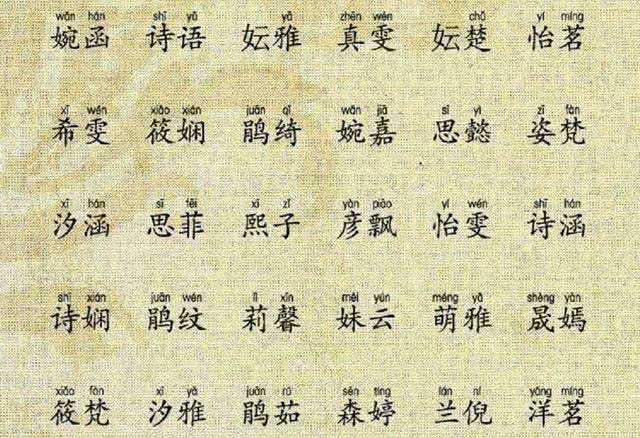 wǎn hán shī yǔ yǎ zhēn wén chǔ yí míng
婉函 诗语 妘雅 真雯 妘楚 怡茗
xī wén xiǎo xián juān qǐ wǎn jiā sī yì zī fàn
希雯 筱娴 鹃绮 婉嘉 思懿 姿梵
xī hán sī fēi xī zǐ yàn piāo yí wén shī hán
汐涵 思菲 熙子 彦飘 怡雯 诗涵
shī xián juān wén lì xīn mèi yún méng yǎ shèng yàn
诗娴 鹃纹 莉馨 妹云 萌雅 晟嫣
xiǎo fàn xī yǎ juān rú sēn tíng lán ní yáng míng
筱梵 汐雅 鹃茹 森婷 兰倪 洋茗